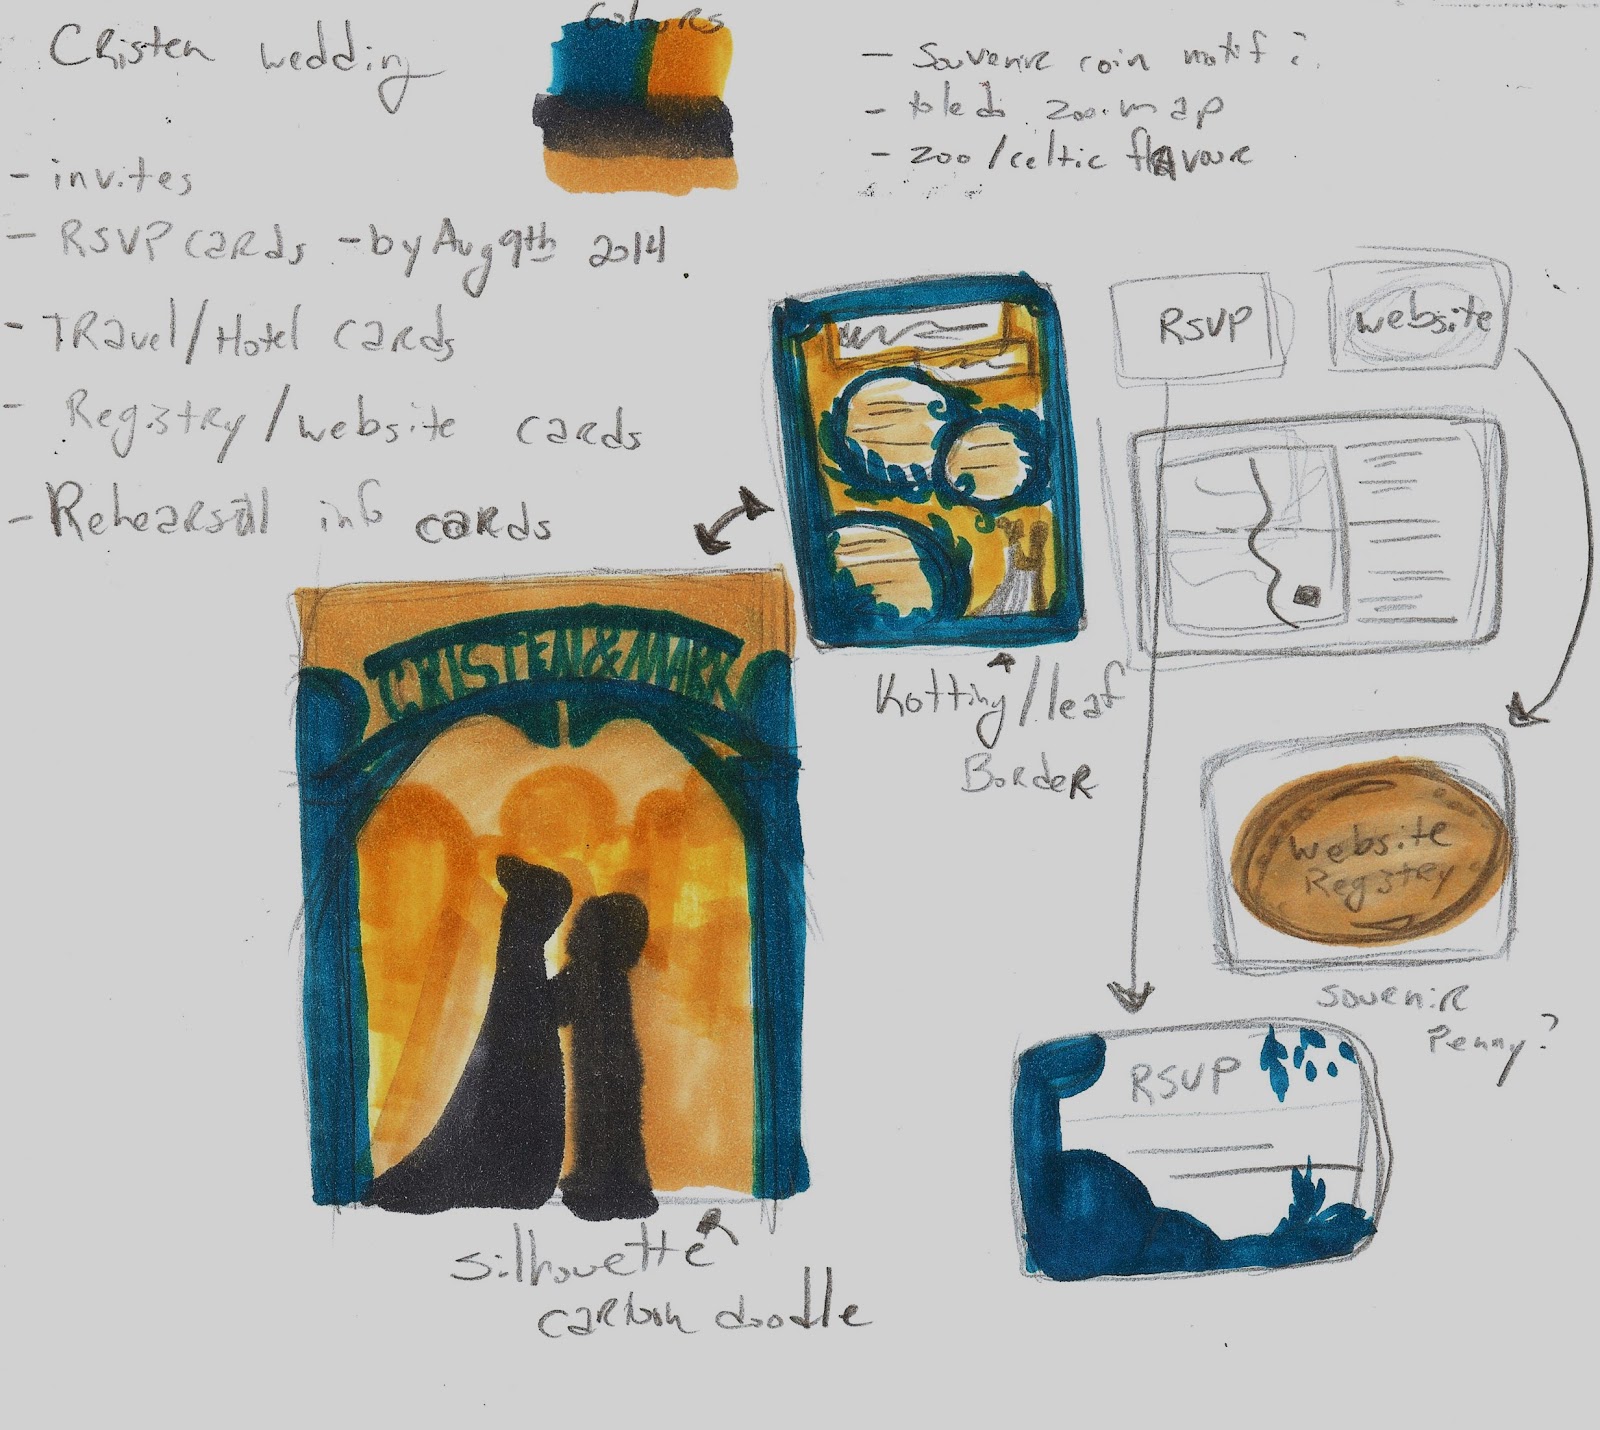 Cristen wedding
Colours
- invites
- RSVP cards - by Aug 9th 2014
- Travel/Hotel cards
- Registry/website cards
- Rehearsal info cards
- Souvenir coin motif?
- toledo zoo map
- zoo/celtic flavour
RSVP
website
CRISTEN & MARK
Knotting/leaf
Border
Website
Registry
Souvenir
Penny?
RSVP
Silhouette
cartoon doodle